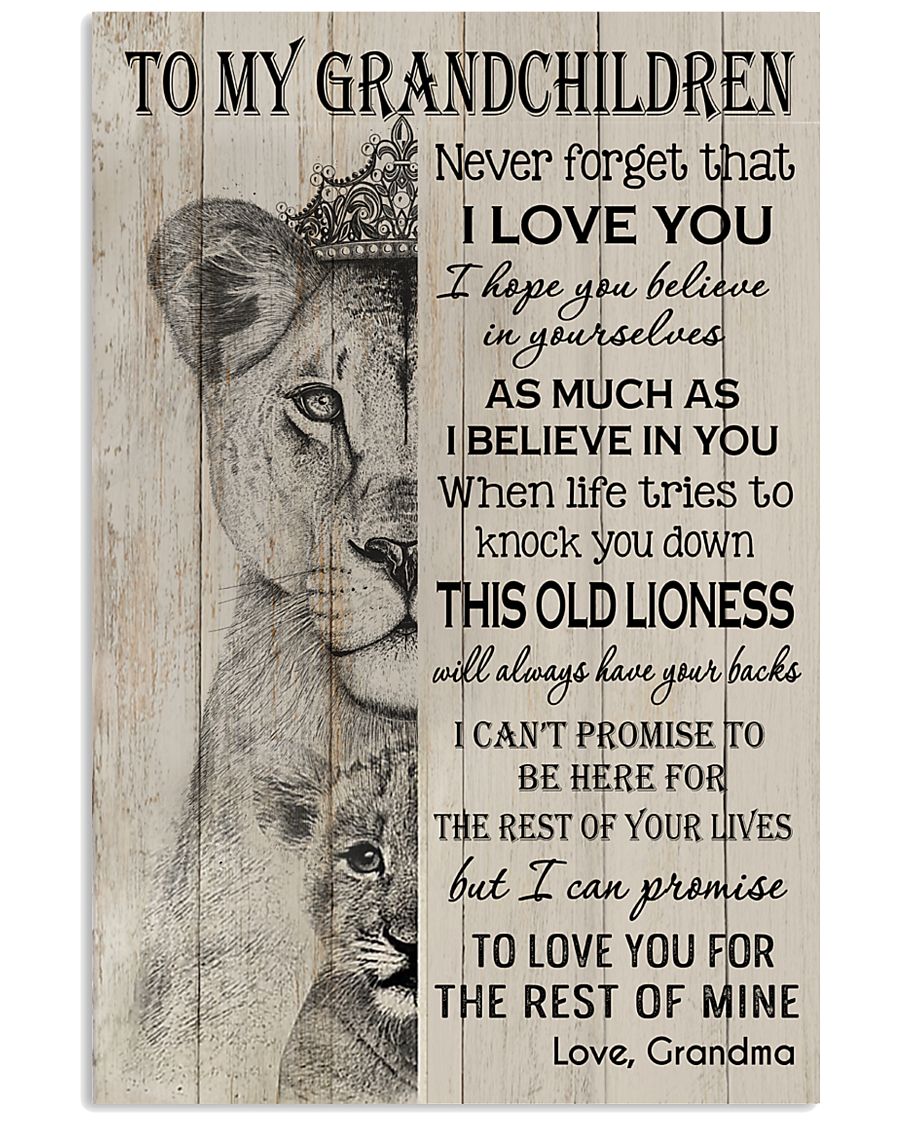 TO MY GRANDCHILDREN
Never forget that
I LOVE YOU
I hope you believe
in yourselves
AS MUCH AS
I BELIEVE IN YOU
When life tries to
knock you down
THIS OLD LIONESS
will always have your backs
I CAN'T PROMISE TO
BE HERE FOR
THE REST OF YOUR LIVES
but I can promise
TO LOVE YOU FOR
THE REST OF MINE
Love, Grandma